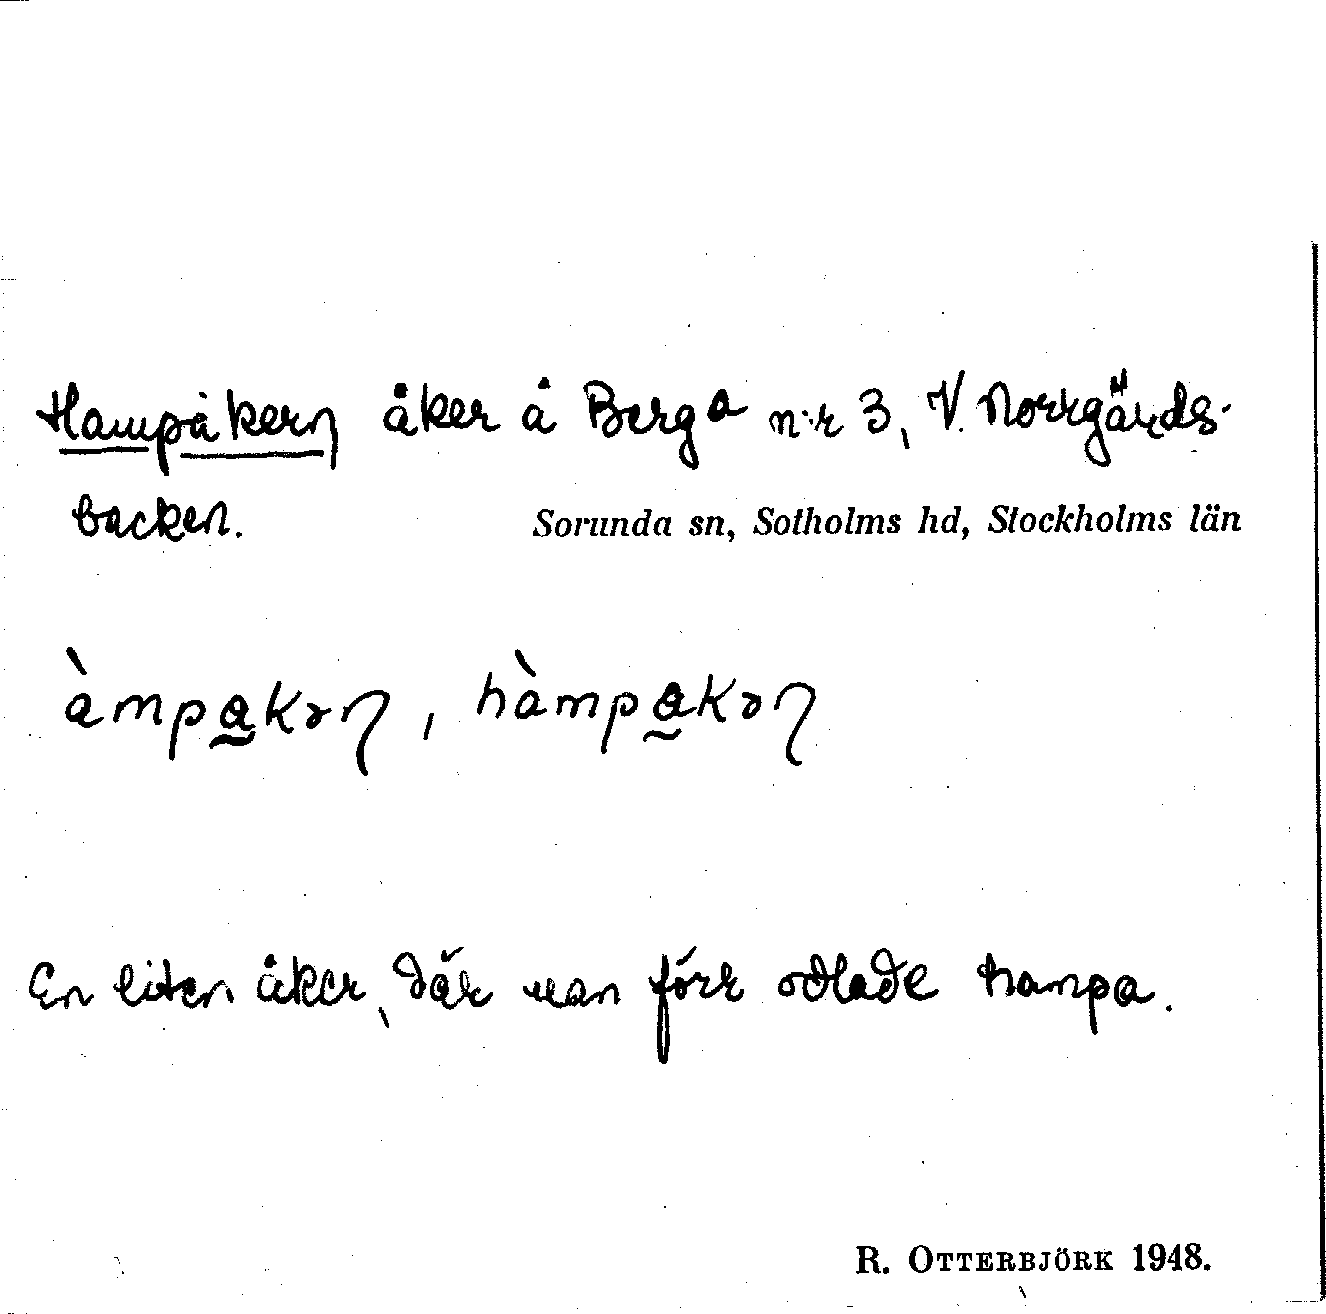 Hampåkern åker å Berga n:r 3, V. Norrgärds-
backen. Sorunda sn, Sotholms hd, Stockholms län
En liten åker, där man förr odlade hampa.
R. OTTERBJÖRK 1948.